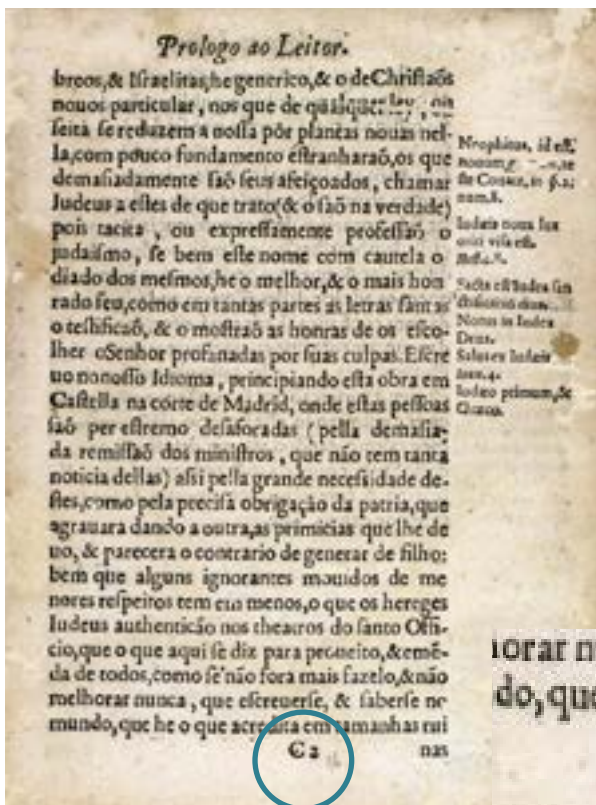 Prologo ao Leitor.
breos,& Israelitas,he generico,& o de Christaõs
nouos particular, nos que de qualquer ley,
seita se reduzem a nossa por plantas nouas nel-
la,com pouco fundamento estranharaõ,os que
demasiadamente saõ seus afeiçoados, chamar
Iudeus a estes de que trato(& o saõ na verdade)
pois tacita, ou expressamente professaõ o
judaismo, se bem este nome com cautela o
diado dos mesmos,he o melhor,& o mais hon
rado seu,como em tantas partes as letras santas
o testificaõ, & o mostraõ as honras de os esco-
lher o Senhor profanadas por suas culpas. Escre
uo no nosso Idioma, principiando esta obra em
Castella na corte de Madrid, onde estas pessoas
saõ per estremo desaforadas (pella demasia-
da remissaõ dos ministros, que não tem tanta
noticia dellas) assi pella grande necessidade de-
stes,como pela precisa obrigação da patria,que
agrauara dando a outra,as primicias que lhe de
uo, & parecera o contrario degenerar de filho:
bem que alguns ignorantes mouidos de me
nores respeitos tem em menos,o que os hereges
Iudeus authenticão nos theatros do santo Offi-
cio,que o que aqui se diz para proueito,& emẽ-
da de todos,como se não fora mais fazelo,& não
melhorar nunca, que escreuerse, & saberse no
mundo,que he o que acredita em tamanhas rui
C 2
nas
Neophitus, id est,
nam.8.
Iudeis noua lux
oriri visa est.
Notus in Iudea
Deus.
Salus ex Iudeis
Ioan.4.
Iudeo primum,&
Græco.
orar n
do, que